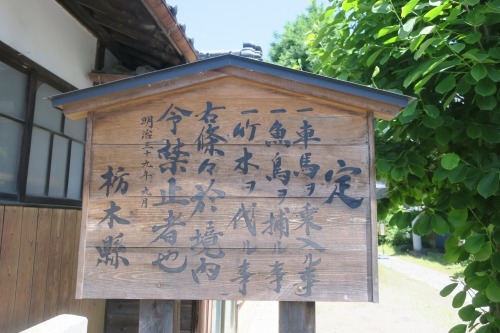 定
一車馬ヲ乗入ル事
一魚鳥ヲ捕ル事
一竹木ヲ伐ル事
右條々於境内
令禁止者也
明治三十九年九月
栃木縣